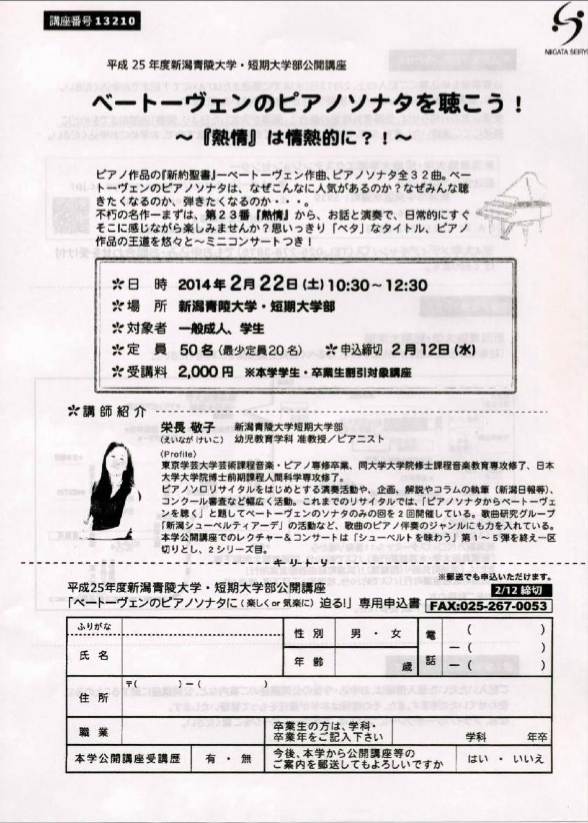 講座番号 13210
NIIGATA SEIRYO
平成25年度新潟青陵大学・短期大学部公開講座
ベートーヴェンのピアノソナタを聴こう！
～『熱情』は情熱的に？！～
ピアノ作品の『新約聖書』ーベートーヴェン作曲、ピアノソナタ全32曲。ベー
トーヴェンのピアノソナタは、なぜこんなに人気があるのか？なぜみんな聴
きたくなるのか、弾きたくなるのか・・・。
不朽の名作ーまずは、第23番『熱情』から、お話と演奏で、日常的にすぐ
そこに感じながら楽しみませんか？思いっきり「ベタ」なタイトル、ピアノ
作品の王道を悠々と～ミニコンサートつき！
✲日 時 2014年2月22日(土)10:30～12:30
✲場 所 新潟青陵大学・短期大学部
✲対象者 一般成人、学生
✲定 員 50名(最少定員20名) ✲申込締切 2月12日(水)
✲受講料 2,000円 ※本学学生・卒業生割引対象講座
✲講師紹介
栄長 敬子 新潟青陵大学短期大学部
(えいなが けいこ) 幼児教育学科 准教授／ピアニスト
(Profile)
東京学芸大学芸術課程音楽・ピアノ専修卒業、同大学大学院修士課程音楽教育専攻修了、日本
大学大学院博士前期課程人間科学専攻修了。
ピアノソロリサイタルをはじめとする演奏活動や、企画、解説やコラムの執筆（新潟日報等）、
コンクール審査など幅広く活動。これまでのリサイタルでは、「ピアノソナタからベートーヴェン
を聴く」と題してベートーヴェンのソナタのみの回を2回開催している。歌曲研究グループ
「新潟シューベルティアーデ」の活動など、歌曲のピアノ伴奏のジャンルにも力を入れている。
本学公開講座でのレクチャー＆コンサートは「シューベルトを味わう」第1～5弾を終え一区
切りとし、2シリーズ目。
キリトリ
※郵送でも申込いただけます。
平成25年度新潟青陵大学・短期大学部公開講座
2/12 締切
「ベートーヴェンのピアノソナタに（楽しく or 気楽に）迫る！」専用申込書
FAX:025-267-0053
ふりがな
氏 名
性 別 男 ・ 女
年 齢 歳
電話 （ ）
－（ ）
－（ ）
住 所 〒( )－( )
職 業
卒業生の方は、学科・
卒業年をご記入下さい
学科 年卒
本学公開講座受講歴 有 ・ 無
今後、本学から公開講座等の
ご案内を郵送してもよろしいですか
はい ・ いいえ